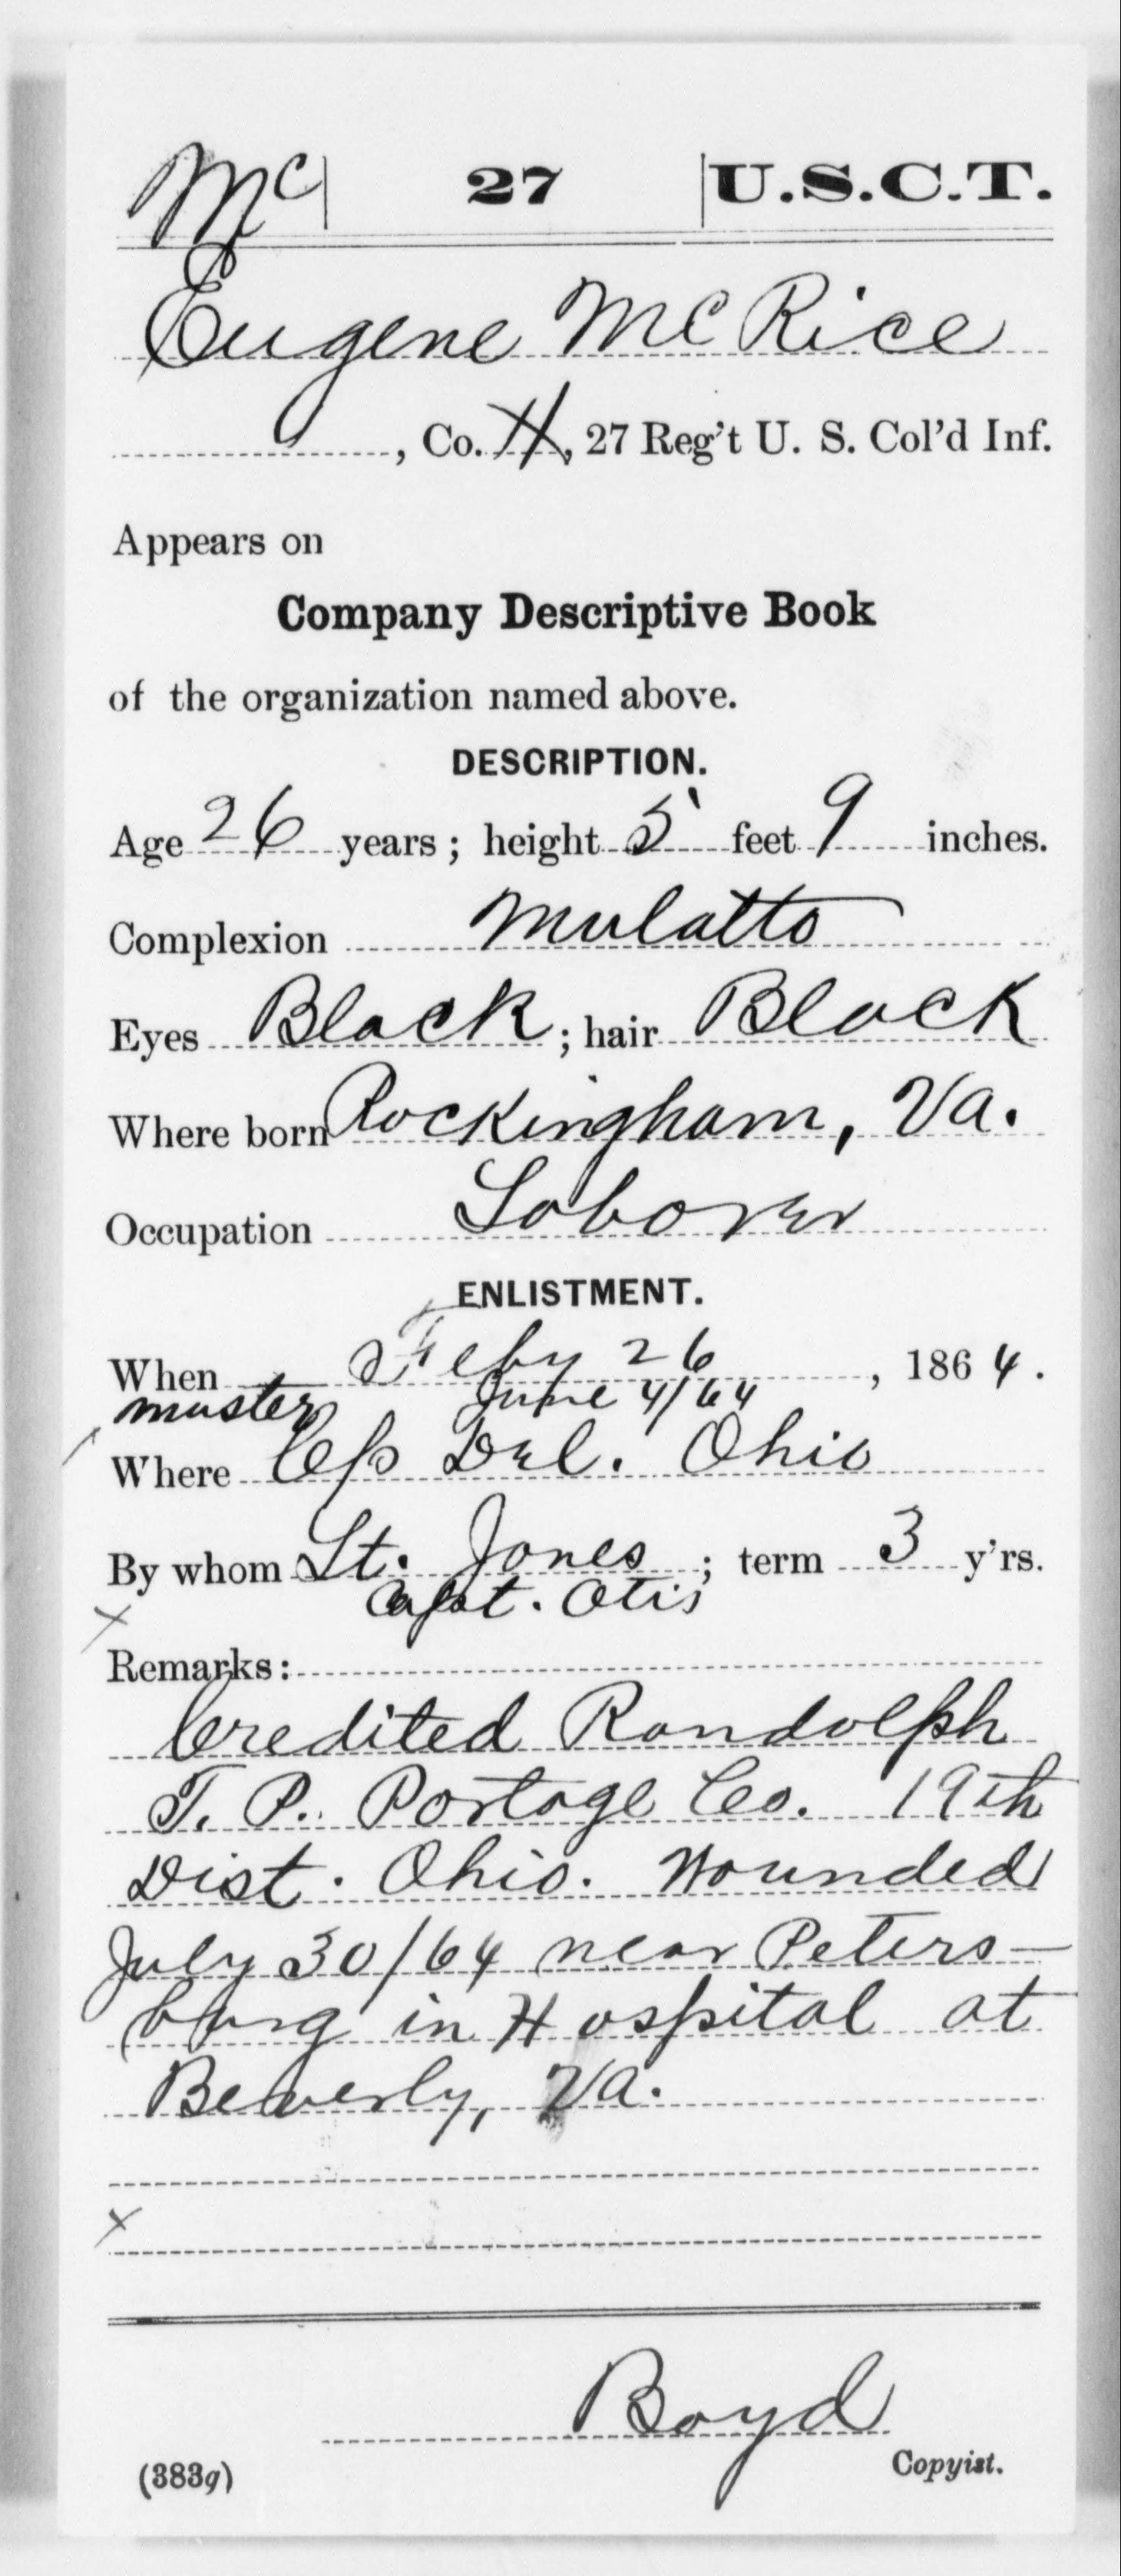 Mc 27 U.S.C.T.
Eugene McRice
, Co. H, 27 Reg't U. S. Col'd Inf.
Appears on
Company Descriptive Book
of the organization named above.
DESCRIPTION.
Age 26 years; height 5 feet 9 inches.
Complexion Mulatto
Eyes Black; hair Black
Where born Rockingham, Va.
Occupation Laborer
ENLISTMENT.
When Feby 26, 1864.
muster June 4/64
Where Cp Del. Ohio
By whom Lt. Jones; term 3 y'rs.
Capt. Otis
Remarks:
Credited Randolph
T. P. Portage Co. 19th
Dist. Ohio. Wounded
July 30/64 near Peters-
burg in Hospital at
Beverly, Va.
Boyd
(383g) Copyist.